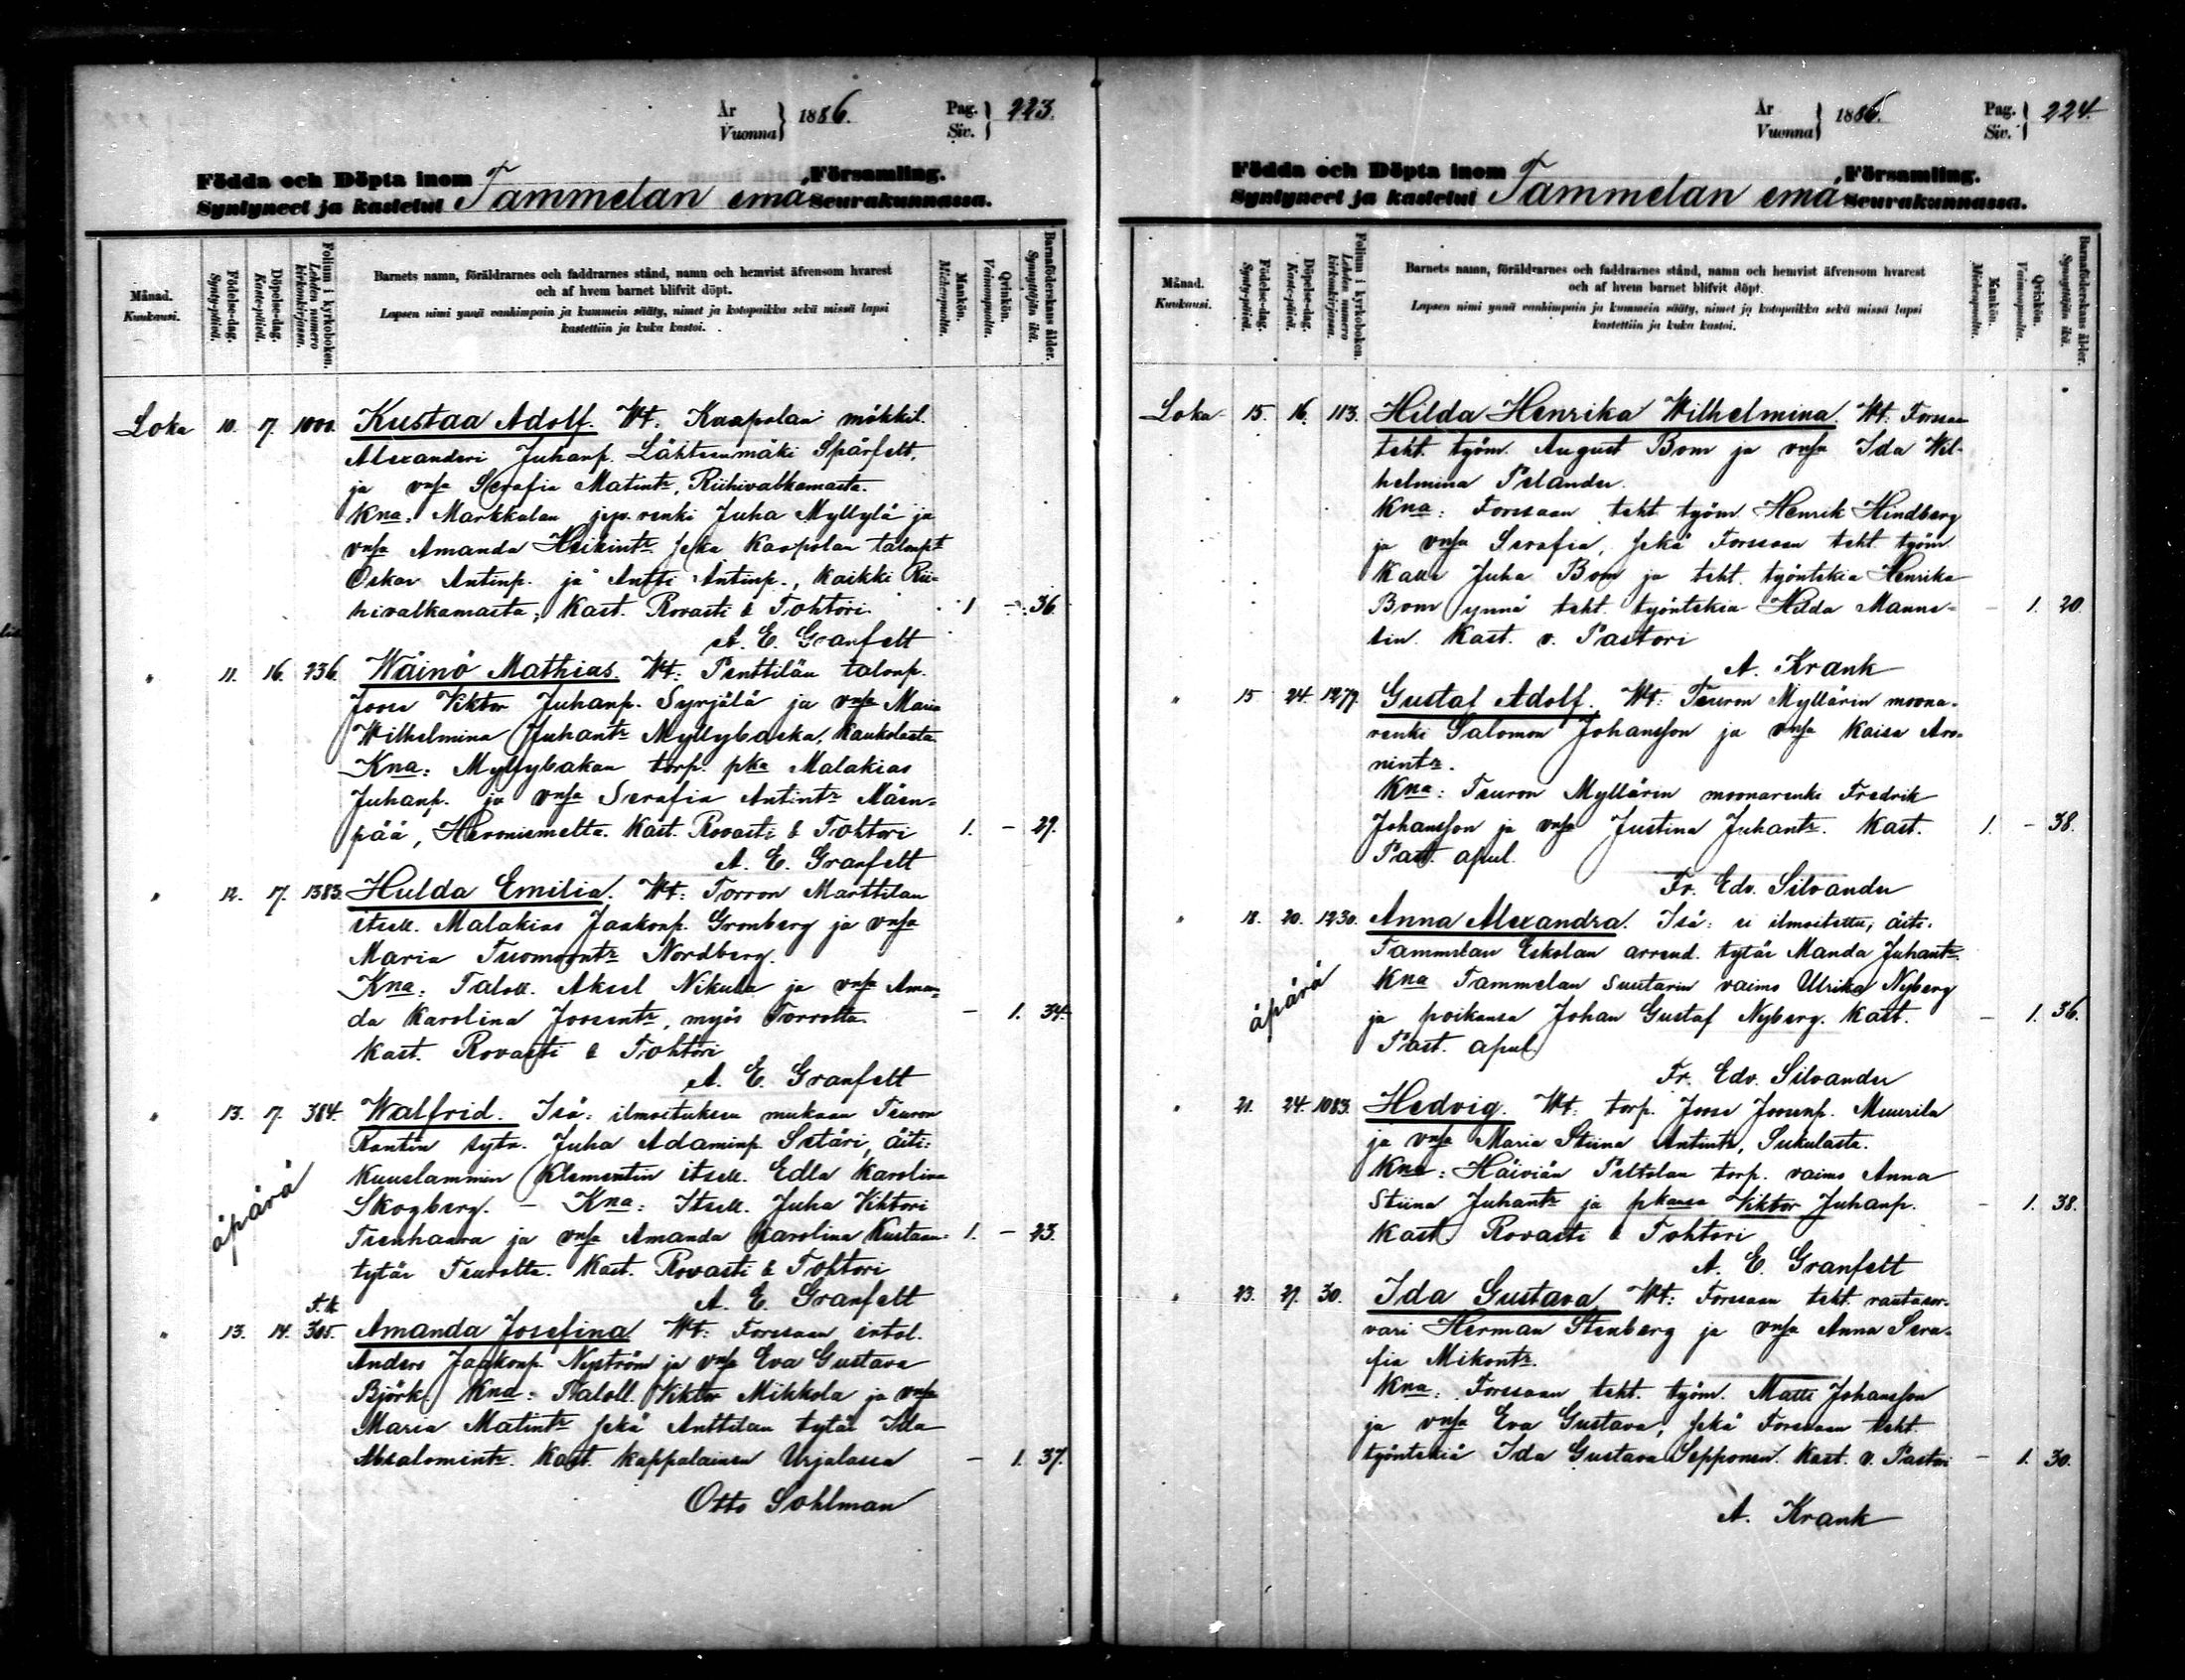 År
Vuonna } 1886.
Pag.
Siv. } 223.
Födda och Döpta inom Tammelan emä Församling.
Syntyneet ja kastetut Seurakunnassa.
Månad.
Kuukausi.
Födelse-dag.
Synty-päivä.
Döpelse-dag.
Kaste-päivä.
Folium i kyrkoboken.
Lehden numero kirkonkirjassa.
Barnets namn, föräldrarnes och faddrarnes stånd, namn och hemvist äfvensom hvarest
och af hvem barnet blifvit döpt.
Lapsen nimi ynnä vanhimpain ja kummein sääty, nimet ja kotopaikka sekä missä lapsi
kastettiin ja kuka kastoi.
Mankön.
Miehenpuolta.
Qvinkön.
Vaimonpuolta.
Barnaföderskans ålder.
Synnyttäjän ikä.
Loka 10. 17. 1000. Kustaa Adolf. Wt: Kaapolan mökkil.
Alexanderi Juhanp. Lähteenmäki Spärfelt,
ja vnsa Serafia Matintr, Riihivalkamasta.
Kna: Markkulan jyp. renki Juha Myllylä ja
vnsa Amanda Heikintr sekä Kaapolan talonpt
Oskar Antinp. ja Antti Antinp., kaikki Rii-
hivalkamasta; Kast. Rovasti & Tohtori 1 - 36.
A. E. Granfelt
" 11. 16. 236. Wäinö Mathias. Wt: Penttilän talonp.
Joose Viktor Juhanp. Syrjälä ja vnsa Maria
Wilhelmina Juhantr Myllybacka, Kaukolasta
Kna: Myllybakan torp. pka Malakias
Juhanp. ja vnsa Serafia Antintr Mäen-
pää, Hevoniemeltä. Kast. Rovasti & Tohtori 1. - 29.
A. E. Granfelt
" 12. 17. 1383. Hulda Emilia. Wt: Torron Marttilan
itsell. Malakias Jaakonp. Gronberg ja vnsa
Maria Tuomaantr Nordberg.
Kna: Taloll. Aksel Nikula ja vnsa Aman-
da Karolina Joosentr, myös Torrolta - 1. 34.
Kast. Rovasti & Tohtori
A. E. Granfelt
" 13. 17. 384. Walfrid. Isä: ilmoituksen mukaan Teuron
Rantin sytn. Juha Adaminp. Setäri, äiti:
Kuuslammin Klementin itsell. Edla Karolina
Skogberg. - Kna: Itsell. Juha Vihtori
äpärä
Tienhaara ja vnsa Amanda Karolina Kustaan- 1. - 23.
tytär Teurolta. Kast. Rovasti & Tohtori
A. E. Granfelt
T.k.
" 13. 14. 305. Amanda Josefina Wt: Forssaan intol.
Anders Jaakonp. Nyström ja vnsa Eva Gustava
Björk. Kna: Taloll. Viktor Mikkola ja vnsa
Maria Matintr sekä Anttilan tytär Ida
Absalomintr. Kast. Kappalainen Urjalassa - 1. 37.
Otto Sohlman
År
Vuonna } 1886.
Pag.
Siv. } 224.
Födda och Döpta inom Tammelan emä Församling.
Syntyneet ja kastetut Seurakunnassa.
Månad.
Kuukausi.
Födelse-dag.
Synty-päivä.
Döpelse-dag.
Kaste-päivä.
Folium i kyrkoboken.
Lehden numero kirkonkirjassa.
Barnets namn, föräldrarnes och faddrarnes stånd, namn och hemvist äfvensom hvarest
och af hvem barnet blifvit döpt.
Lapsen nimi ynnä vanhimpain ja kummein sääty, nimet ja kotopaikka sekä missä lapsi
kastettiin ja kuka kastoi.
Mankön.
Miehenpuolta.
Qvinkön.
Vaimonpuolta.
Barnaföderskans ålder.
Synnyttäjän ikä.
Loka 15. 16. 113. Hilda Henrika Wilhelmina. Wt: Forssan
teht. työm. August Bom ja vnsa Ida Wil-
helmina Pelander.
Kna: Forssaan teht. työm Henrik Hindberg
ja vnsa Serafia, sekä Forssaan teht. työm
Kalle Juha Bom ja teht. työntekiä Henrika
Bom ynnä teht. työntekiä Hilda Manne- - 1. 20.
lin. Kast. v. Pastori
A. Krank
" 15 24. 1279. Gustaf Adolf. Wt: Teuron Myllärin moona-
renki Salomon Johansson ja vnsa Kaisa Aro-
nintr.
Kna: Teuron Myllärin moonarenki Fredrik
Johansson ja vnsa Justina Juhantr. Kast. 1. - 38.
Past. apul.
Fr. Edv. Silvander
" 18. 20. 1230. Anna Alexandra. Isä: ei ilmoitettu; äiti:
Tammelan Eskolan arrend. tytär Manda Juhantr.
Kna Tammelan Suutarin vaimo Ulrika Nyberg
äpärä
ja poikansa Johan Gustaf Nyberg. Kast. - 1. 36.
Past. apul.
Fr. Edv. Silvander
" 21. 24. 1083. Hedvig. Wt: torp. Joose Joosenp. Muurila
ja vnsa Maria Stiina Antintr, Sukulasta.
Kna: Häiviän Peltolan torp. vaimo Anna
Stiina Juhantr ja pkansa Viktor Juhanp. - 1. 38.
Kast. Rovasti & Tohtori
A. E. Granfelt
" 23. 27. 30. Ida Gustava Wt: Forssaan teht. rautasor-
vari Herman Stenberg ja vnsa Anna Sera-
fia Mikontr.
Kna: Forssaan teht. työm. Matti Johansson
ja vnsa Eva Gustava, sekä Forssaan teht.
työntekiä Ida Gustava Sepponen. Kast. v. Pastori - 1. 30.
A. Krank